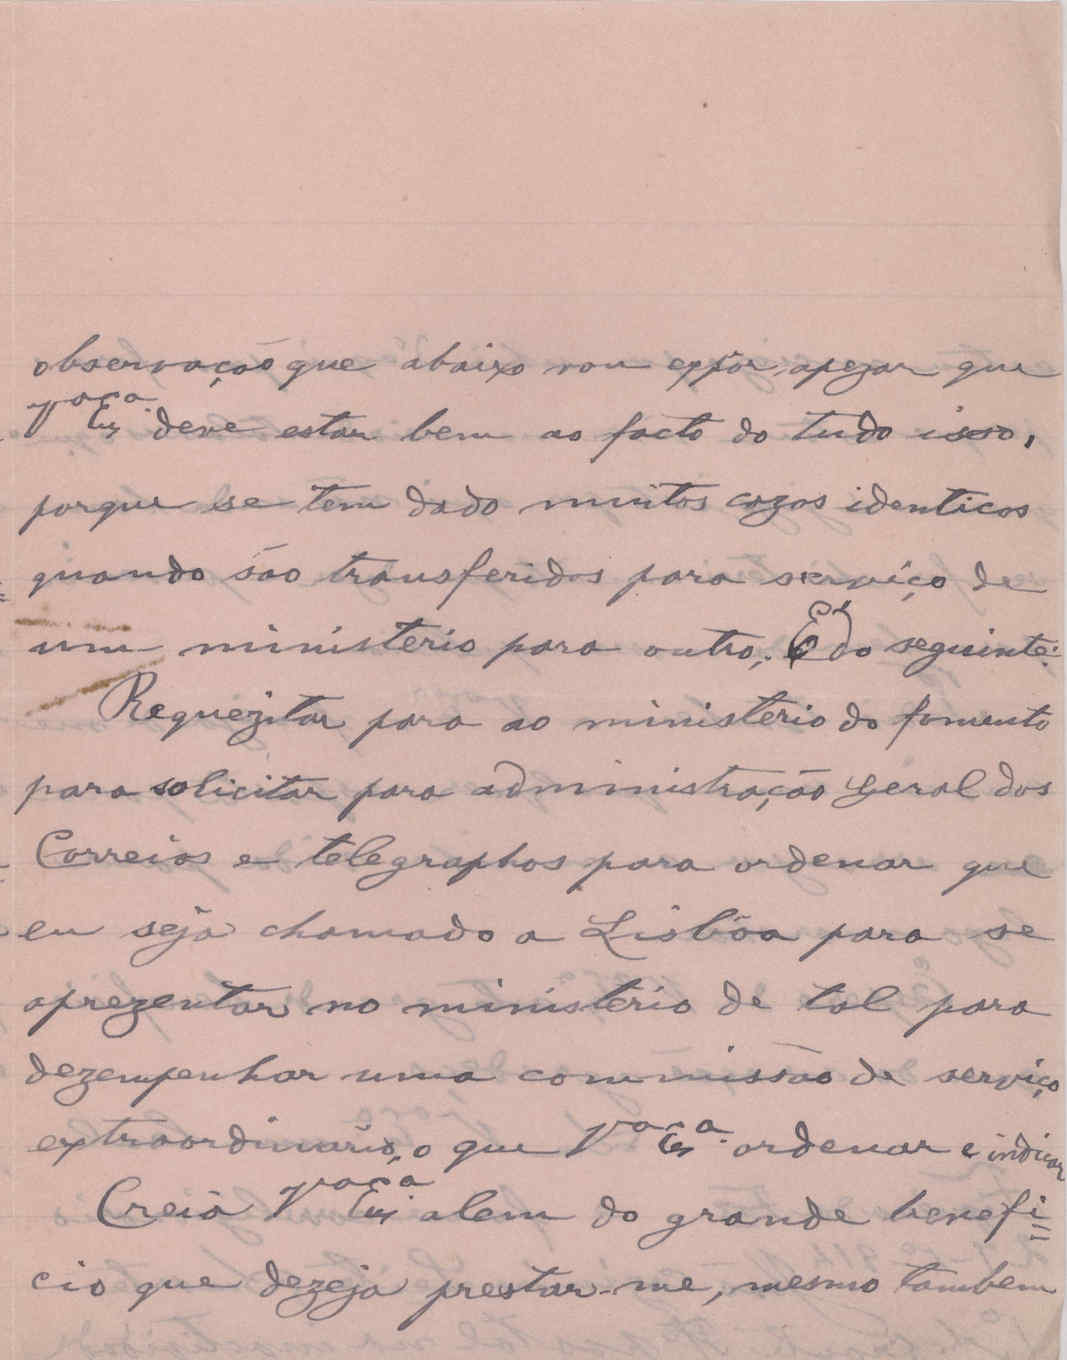 observação que abaixo vou expôr, apezar que
Vª Exª deve estar bem ao facto do tudo isso,
porque se tem dado muitos cazos identicos
quando são transferidos para serviço de
um ministerio para outro,. É do seguinte:
Requezitar para ao ministerio do fomento
para solicitar para administração geral dos
Correios e telegraphos para ordenar que
eu seja chamado a Lisbôa para se
aprezentar no ministerio de tal para
dezempenhar uma commissão de serviço
extraordinario, o que Vª Exª ordenar e indicar
Creia Vª Exª alem do grande benefi=
cio que dezeja prestar-me, mesmo tambem